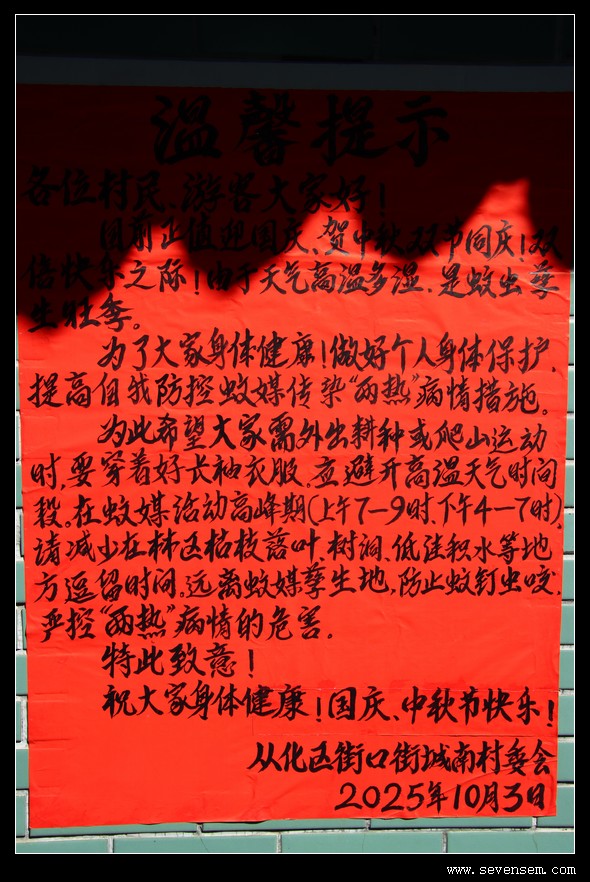 温馨提示
各位村民、游客大家好!
目前正值迎国庆、贺中秋双节同庆!双
倍快乐之际!由于天气高温多湿,是蚊虫孳
生旺季。
为了大家身体健康!做好个人身体保护,
提高自我防控蚊媒传染“两热”病情措施。
为此希望大家需外出耕种或爬山运动
时,要穿着好长袖衣服,立避开高温天气时间
段。在蚊媒活动高峰期(上午7—9时、下午4—7时),
请减少在林区枯枝落叶、树洞、低洼积水等地
方逗留时间。远离蚊媒孳生地,防止蚊钉虫咬,
严控“两热”病情的危害。
特此致意!
祝大家身体健康!国庆、中秋节快乐!
从化区街口街城南村委会
2025年10月3日
www.sevensem.com